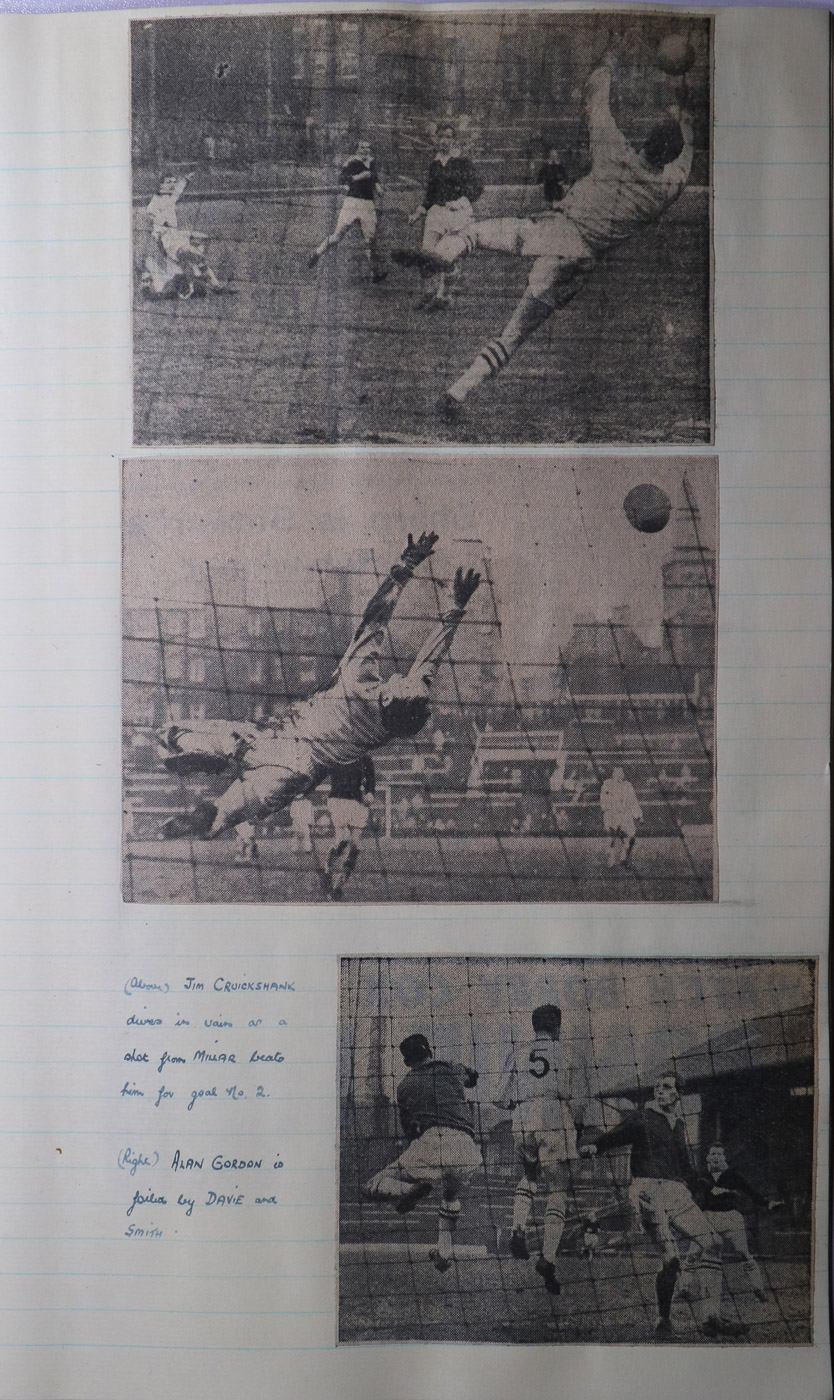 5
(Above) JIM CRUICKSHANK
dives in vain as a
shot from MILLAR beats
him for goal No. 2.
(Right) ALAN GORDON is
foiled by DAVIE and
SMITH.